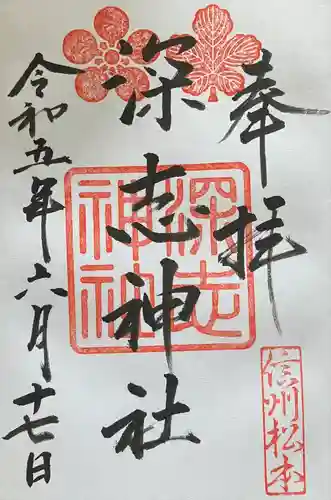 奉拝
深志神社
深志
神社
令和五年六月十七日
信州松本